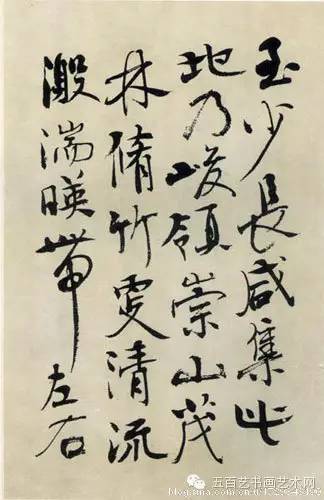 至少長咸集此
地乃峻領崇山茂
林脩竹更清流
激湍暎帶左右
五百艺书画艺术网